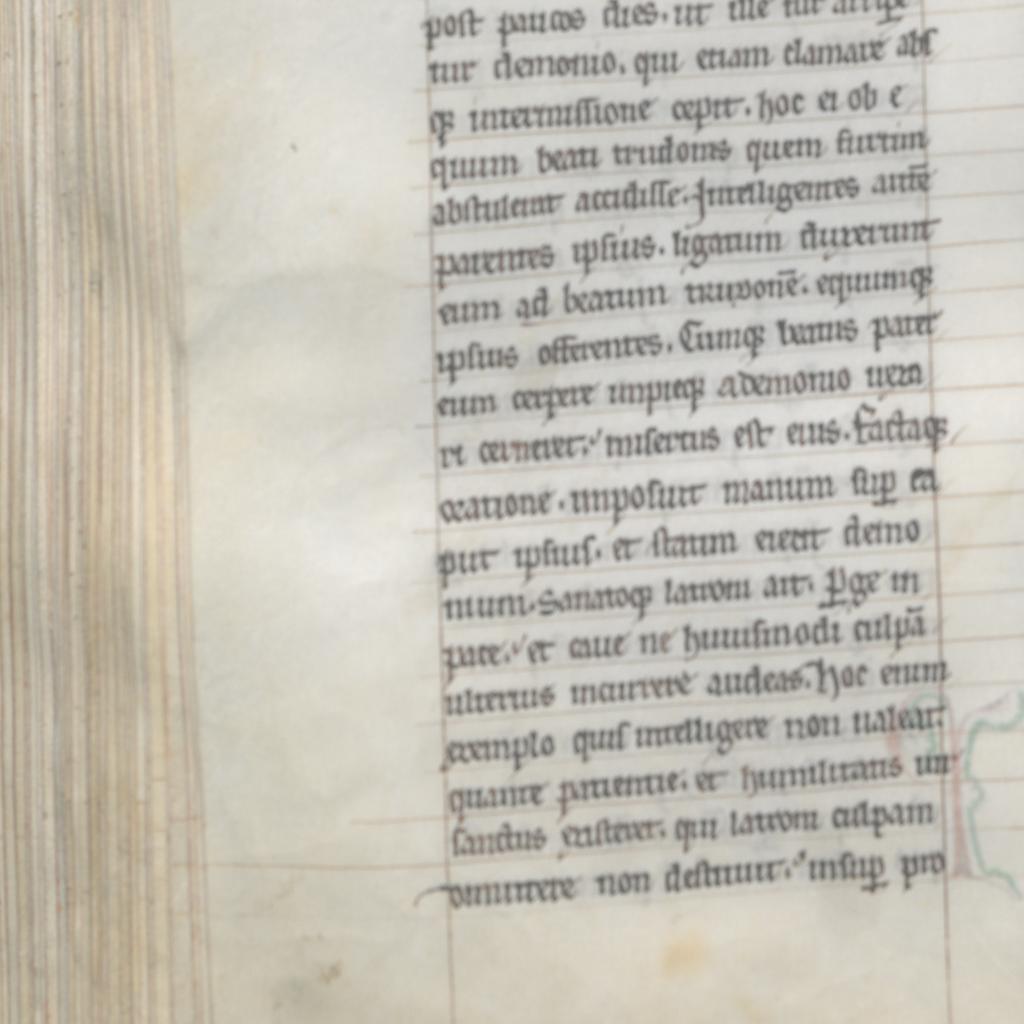 post paucos dies. ut ille fur arripe
tur demonio. qui etiam clamare abs
qꝫ intermissione cepit. hoc ei ob e
quum beati trudonis quem furtim
abstulerat accidisse. Intelligentes autē
parentes ipsius. ligatum duxerunt
eum ad beatum trudonē. equumqꝫ
ipsius offerentes. Cumqꝫ beatus pater
eum certare impieqꝫ a demonio
ri cerneret. misertus est eius. factaqꝫ
oratione. imposuit manum suꝑ ca
put ipsius. et statim eiecit demo
nium. Sanatoqꝫ latroni ait. ꝑge in
pace. et caue ne huiusmodi culpā
ulterius incurrere audeas. hoc enim
exemplo quis intelligere non ualeat.
quante patientie. et humilitatis uir
sanctus existeret. qui latroni culpam
dimittere non destitit. insuꝑ pro